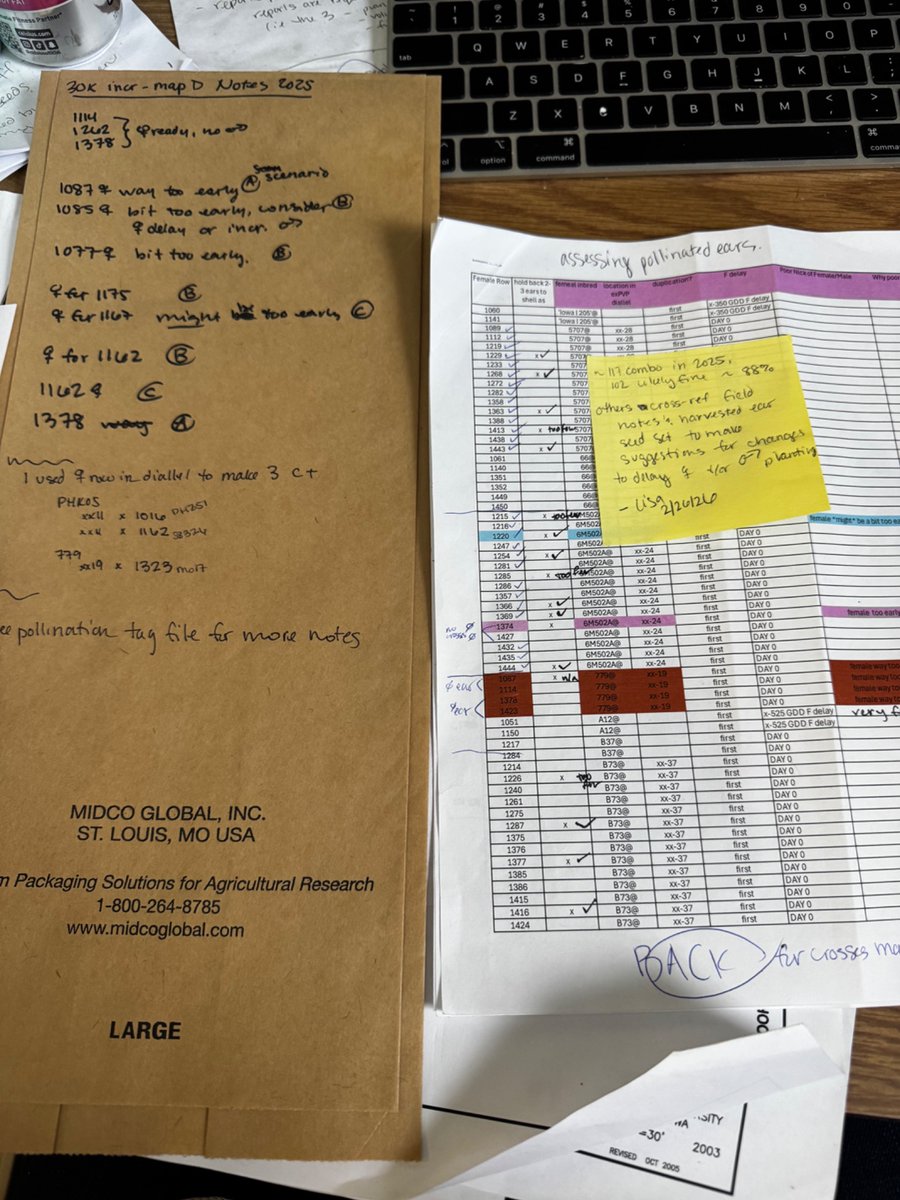 30K incr - map D Notes 2025
1114
1262 } ♀ ready, no ♂
1378
1087 ♀ way to early Ⓐ scenario
1085 ♀ bit too early, consider Ⓑ
♀ delay or incr. ♂
1077 ♀ bit too early. Ⓑ
♀ for 1175 Ⓑ
♀ for 1167 might be too early Ⓒ
♀ for 1162 Ⓑ
1162 ♀ Ⓒ
1378 Ⓐ
I used ♀ row in diallel to make 3 c+
PHK05
xx11 x 1016 PH251
xx11 x 1162
779
xx19 x 1323 mo17
pollination tag file for more notes
MIDCO GLOBAL, INC.
ST. LOUIS, MO USA
Packaging Solutions for Agricultural Research
1-800-264-8785
www.midcoglobal.com
LARGE
tab
Q W E R T Y U I O P
A S D F G H J K L
Z X C V B N M
option
command
assessing pollinated ears.
Female Row hold back 2-3 ears to shell as femeal inbred location in exPVP diallel duplication? F delay Poor Nick of Female/Male Why poor
1060 'Iowa I 205'@ first x-350 GDD F delay
1141 'Iowa I 205'@ first x-350 GDD F delay
1089 ✓ 5707@ xx-28 first DAY 0
1112 ✓ 5707@ xx-28 first DAY 0
1219 ✓ 5707@ xx-28 first DAY 0
1229 ✓ x ✓ 5707
1233 ✓ 5707
1268 ✓ x ✓ 5707
1272 ✓ 5707
1282 ✓ 5707
1358 ✓ 5707
1363 ✓ x ✓ 5707
1388 ✓ 5707
1413 ✓ x too few 5707
1438 ✓ 5707
1443 ✓ x ✓ 5707
1061 66@
1140 66@
1351 66@
1352 66@
1449 66@
1450 66@
1215 ✓ x 6M502
1216 ✓ 6M502
1220 ✓ x ✓ 6M502 female *might* be a bit too ear
1247 ✓ 6M502A@ first DAY 0
1254 ✓ x ✓ 6M502A@ xx-24 first DAY 0
1281 ✓ 6M502A@ xx-24 first DAY 0
1285 x too few 6M502A@ xx-24 first DAY 0
1286 ✓ 6M502A@ xx-24 first DAY 0
1357 ✓ 6M502A@ xx-24 first DAY 0
1366 ✓ x ✓ 6M502A@ xx-24 first DAY 0
1369 ✓ x ✓ 6M502A@ xx-24 first DAY 0
1374 x 6M502A@ xx-24 first DAY 0 female too early
1427 6M502A@ xx-24 first DAY 0
1432 ✓ 6M502A@ xx-24 first DAY 0
1435 ✓ 6M502A@ xx-24 first DAY 0
1444 ✓ x ✓ 6M502A@ xx-24 first DAY 0
1087 x n/a 779@ xx-19 first DAY 0 female way too
1114 779@ xx-19 first DAY 0 female way too
1378 779@ xx-19 first DAY 0 female way too
1423 779@ xx-19 first DAY 0 female way too
1051 A12@ first x-525 GDD F delay very f
1150 A12@ first x-525 GDD F delay
1217 B37@ first DAY 0
1284 B37@ first DAY 0
1214 B73@ xx-37 first DAY 0
1226 x too few B73@ xx-37 first DAY 0
1240 B73@ xx-37 first DAY 0
1261 B73@ xx-37 first DAY 0
1275 B73@ xx-37 first DAY 0
1287 x ✓ B73@ xx-37 first DAY 0
1375 B73@ xx-37 first DAY 0
1376 B73@ xx-37 first DAY 0
1377 x ✓ B73@ xx-37 first DAY 0
1385 B73@ xx-37 first DAY 0
1386 B73@ xx-37 first DAY 0
1415 B73@ xx-37 first DAY 0
1416 x ✓ B73@ xx-37 first DAY 0
1424 B73@ xx-37 first DAY 0
~ 117 combo in 2025.
102 likely fine ~ 88%
others cross-ref field
notes & harvested ear
seed set to make
suggestions for changes
to delay ♀ +/or ♂ planting
- Lisa 2/26/26
BACK for crosses ma
=30' 2003
REVISED OCT 2005